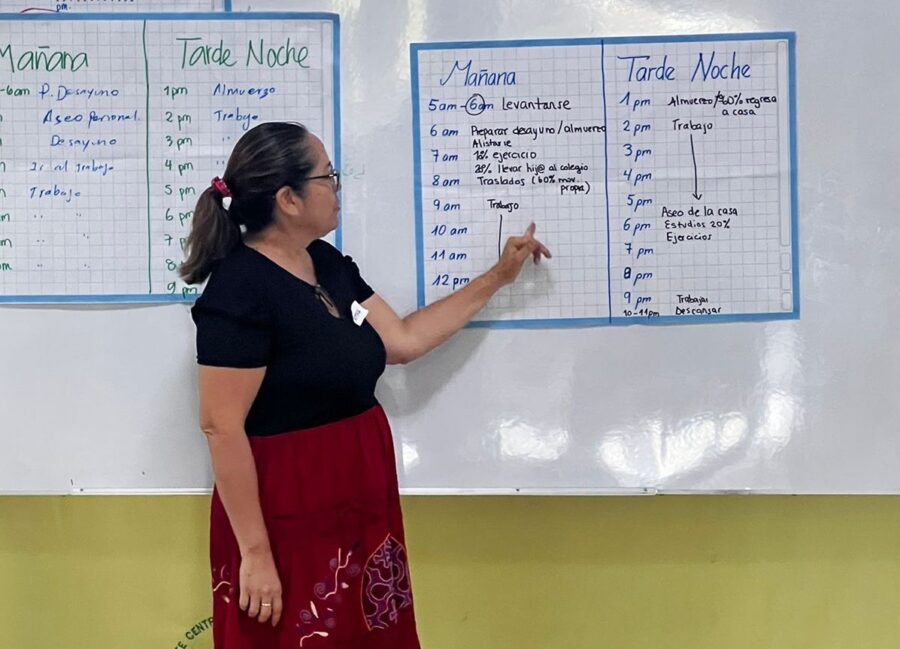 pm.
Mañana
Tarde Noche
-6am P. Desayuno
Aseo Personal.
Desayuno
Ir al trabajo
Trabajo
" "
" "
" "
1pm Almuerzo
2 pm Trabajo
3 pm
4 pm
5 pm
6 pm
7 p
8
9 pm
Mañana
5 am - 6 am Levantarse
6 am Preparar desayuno/almuerzo
Alistarse
7 am 15% ejercicio
25% llevar hij@ al colegio
8 am Traslados (60% mov. propia)
9 am Trabajo
10 am
11 am
12 pm
Tarde Noche
1 pm Almuerzo/60% regresa
a casa
2 pm Trabajo
3 pm
4 pm
5 pm
Aseo de la casa
6 pm Estudios 20%
Ejercicios
7 pm
8 pm
9 pm Trabajar
10-11pm Descansar
TE CENTR